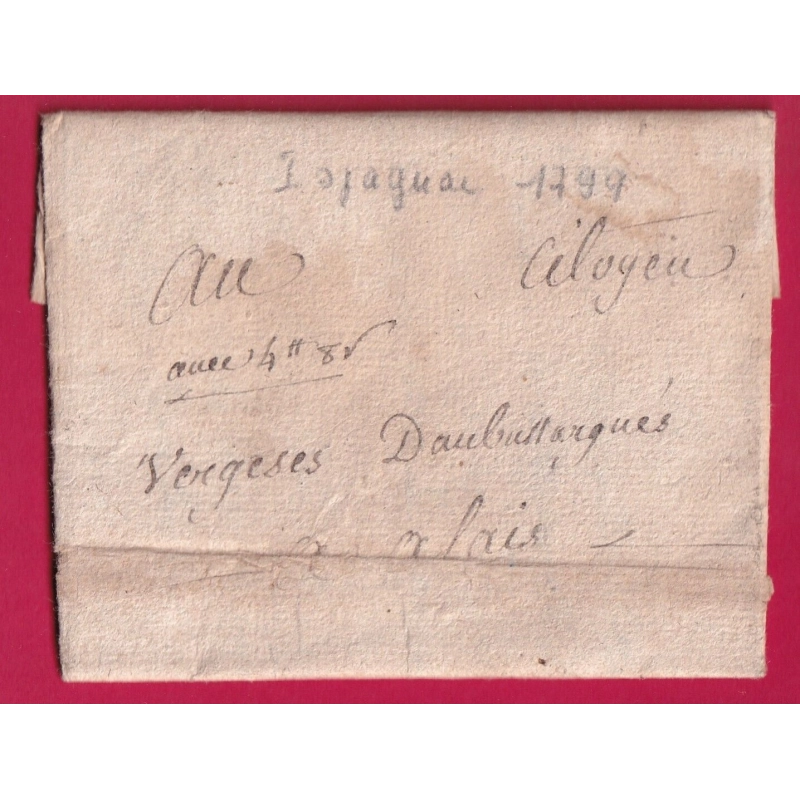 Ispagnac 1799
Au Citoyen
avec 4 tt 8 s
Vergeses Daubussargués
a alais